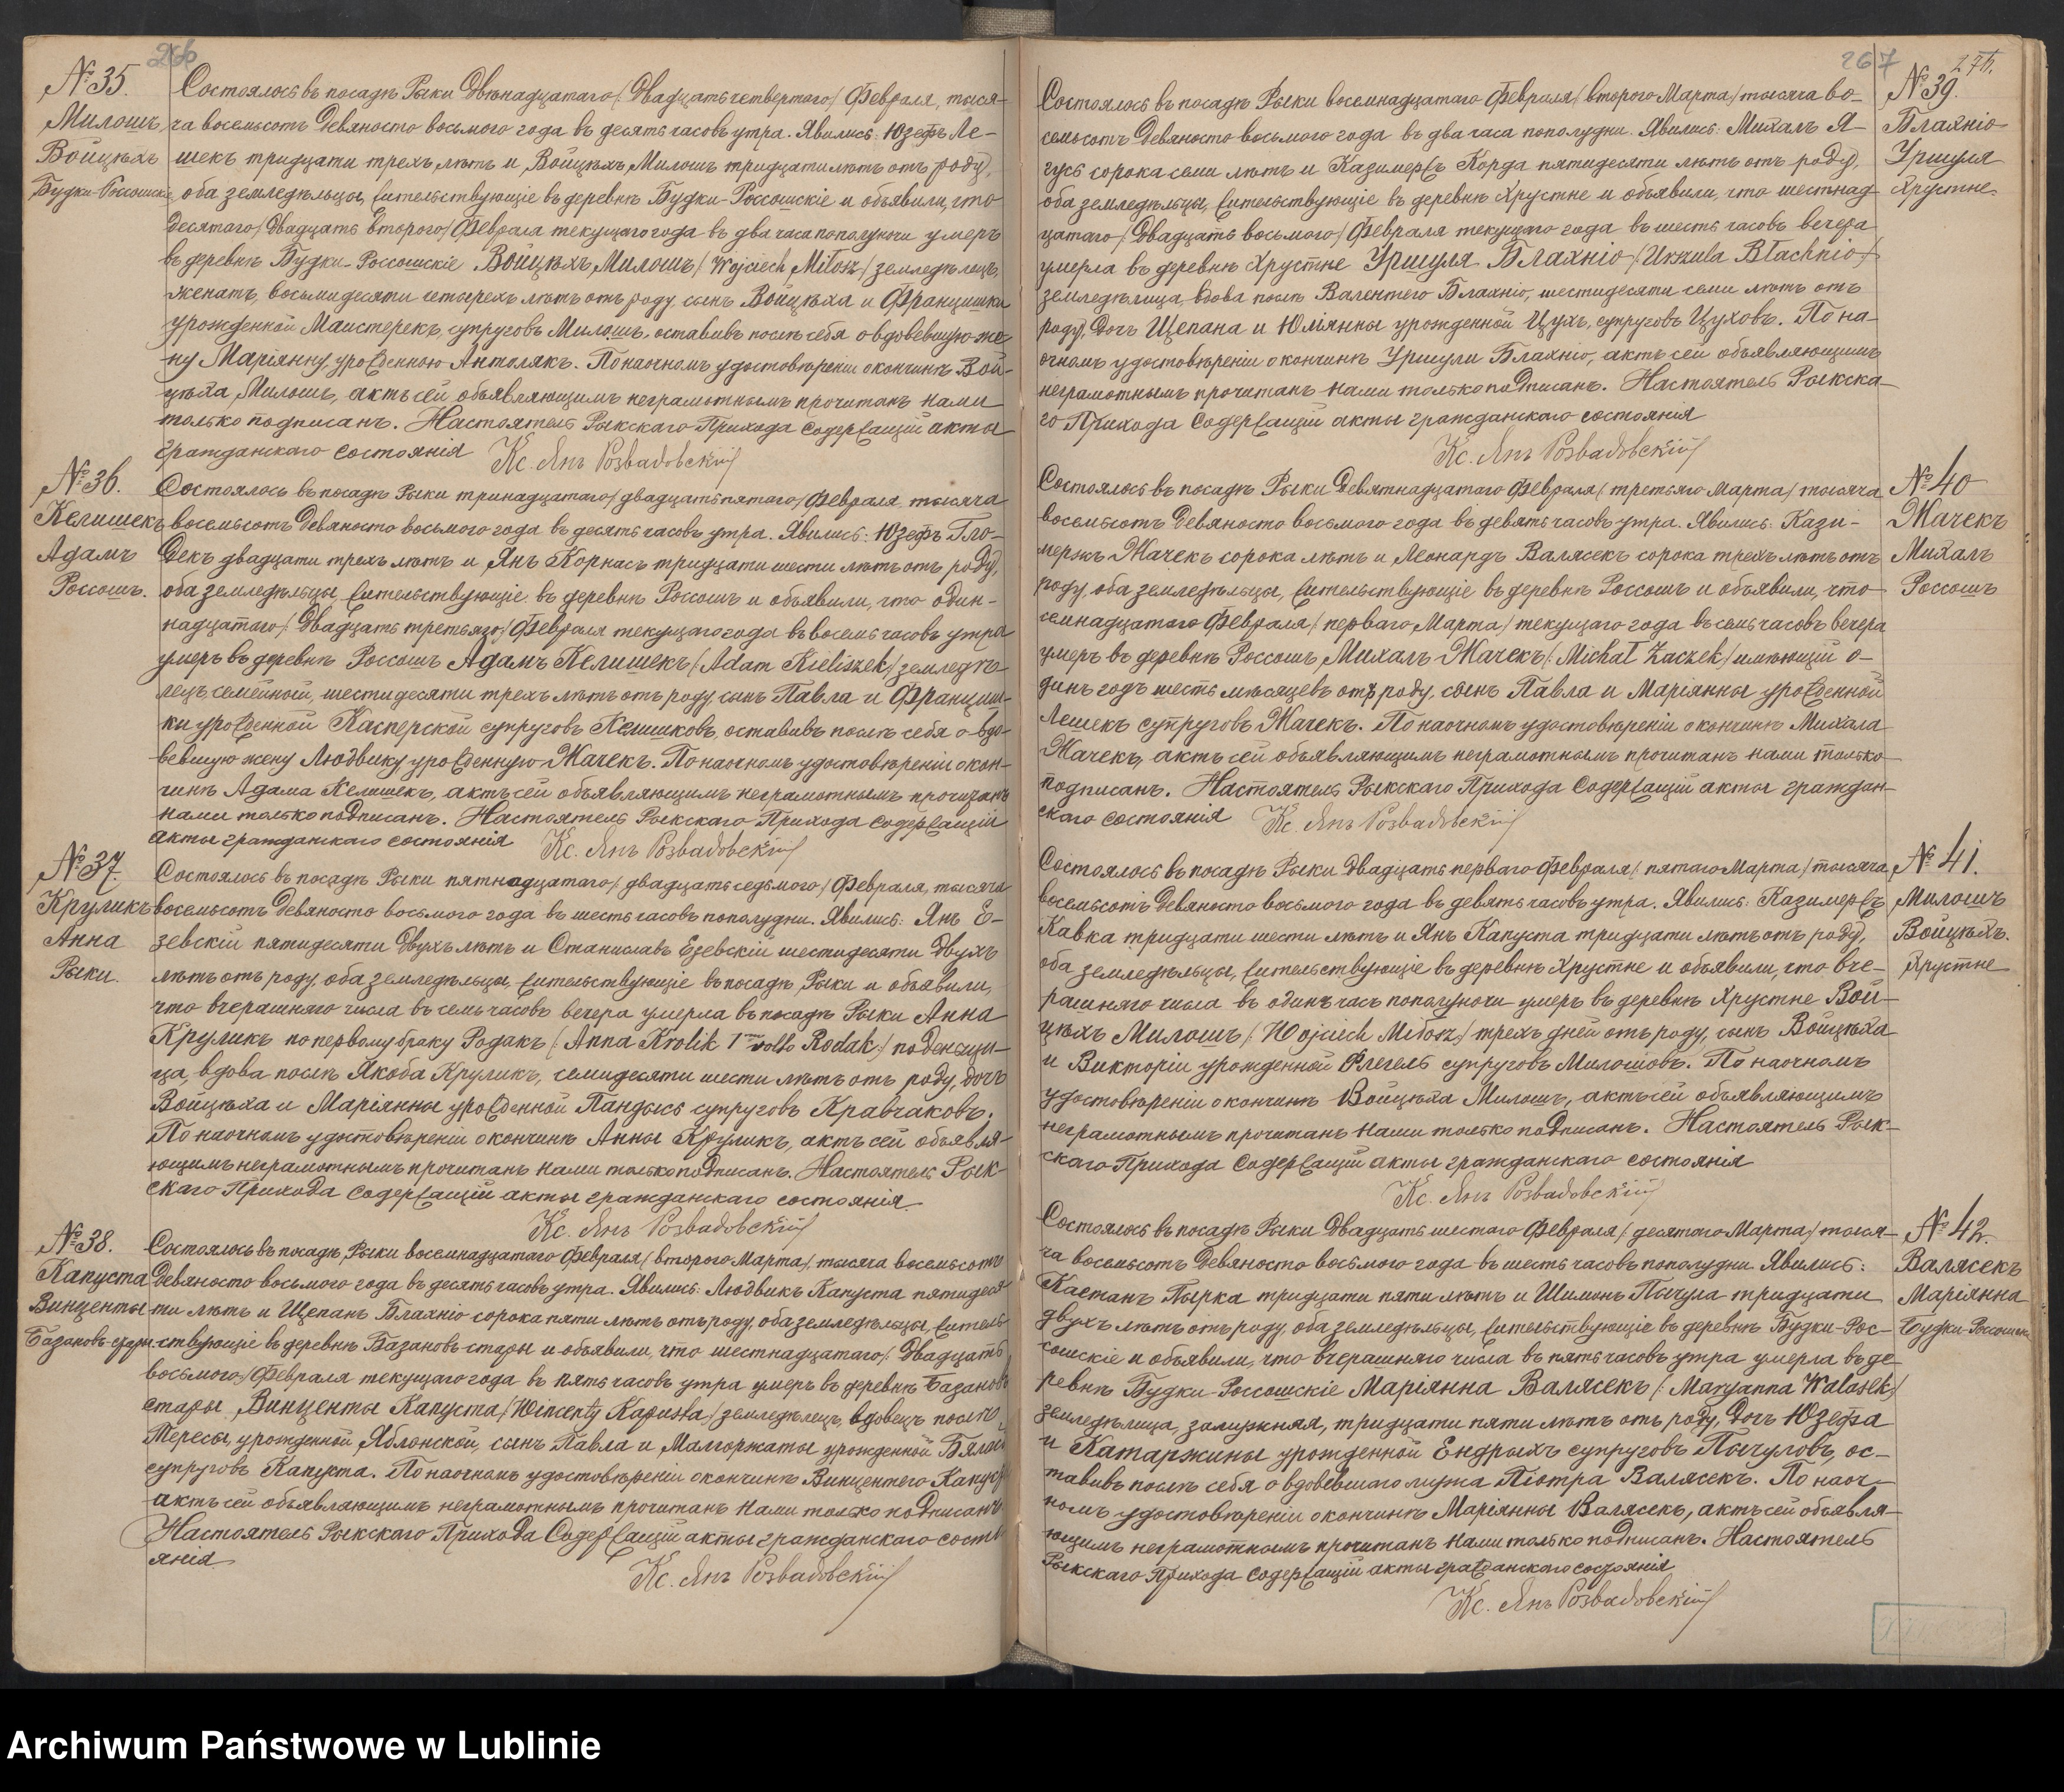 266
№ 35.
Милошъ
Войцѣхъ
Будки-Россошскіе
Состоялось въ посадѣ Рыки двѣнадцатаго /: двадцать четвертаго :/ февраля, тыся-
ча восемьсотъ девяносто восьмого года въ десять часовъ утра. Явились: Юзефъ Ле-
шекъ тридцати трехъ лѣтъ и Войцѣхъ Милошъ тридцати лѣтъ отъ роду,
оба земледѣльцы, жительствующіе въ деревнѣ Будки-Россошскіе и объявили, что
десятаго /: двадцать второго :/ февраля текущаго года въ два часа пополуночи умеръ
въ деревнѣ Будки-Россошскіе Войцѣхъ Милошъ /: Wojciech Miłosz :/ земледѣлецъ,
женатъ, восьмидесяти четырехъ лѣтъ отъ роду, сынъ Войцѣха и Францишки
урожденной Маистерекъ, супруговъ Милошъ, оставивъ послѣ себя овдовевшую же-
ну Маріянну, урожденною Антолякъ. По наочномъ удостовѣреніи о кончинѣ Вой-
цѣха Милошъ, актъ сей объявляющимъ неграмотнымъ прочитанъ нами
только подписанъ. Настоятель Рыкскаго Прихода Содержащій акты
гражданскаго состоянія Кс. Янъ Розвадовскій
№ 36.
Келишекъ
Адамъ
Россошъ.
Состоялось въ посадѣ Рыки тринадцатаго /: двадцать пятаго :/ февраля, тысяча
восемьсотъ девяносто восьмого года въ десять часовъ утра. Явились: Юзефъ Гло-
декъ двадцати трехъ лѣтъ и Янъ Корнасъ тридцати шести лѣтъ отъ роду,
оба земледѣльцы, жительствующіе въ деревнѣ Россошъ и объявили, что один-
надцатаго /: двадцать третьяго :/ февраля текущаго года въ восемь часовъ утра
умеръ въ деревнѣ Россошъ Адамъ Келишекъ /: Adam Kieliszek :/ земледѣ-
лецъ семейной, шестидесяти трехъ лѣтъ отъ роду, сынъ Павла и Францыш-
ки урожденной Касперской супруговъ Келишковъ, оставивъ послѣ себя овдо-
вевшую жену Людвику урожденную Жачекъ. По наочномъ удостовѣреніи о кон-
чинѣ Адама Келишекъ, актъ сей объявляющимъ неграмотнымъ прочитанъ
нами только подписанъ. Настоятель Рыкскаго Прихода Содержащій
акты гражданскаго состоянія Кс. Янъ Розвадовскій
№ 37.
Круликъ
Анна
Рыки.
Состоялось въ посадѣ Рыки пятнадцатаго /: двадцать седьмого :/ февраля, тысяча
восемьсотъ девяносто восьмого года въ шесть часовъ пополудни. Явились: Янъ Е-
зевскій пятидесяти двухъ лѣтъ и Станиславъ Езевскій шестидесяти двухъ
лѣтъ отъ роду, оба земледѣльцы, жительствующіе въ посадѣ Рыки и объявили,
что вчерашняго числа въ семь часовъ вечера умерла въ посадѣ Рыки Анна
Круликъ по первому браку Родакъ /: Anna Królik 1mo voto Rodak :/ поденщи-
ца, вдова послѣ Якоба Круликъ, семидесяти шести лѣтъ отъ роду, дочь
Войцѣха и Маріянны урожденной Пандысь супруговъ Кравчаковъ.
По наочномъ удостовѣреніи о кончинѣ Анны Круликъ, актъ сей объявля-
ющимъ неграмотнымъ прочитанъ нами только подписанъ. Настоятель Рык-
скаго Прихода Содержащій акты гражданскаго состоянія
Кс. Янъ Розвадовскій
№ 38.
Капуста
Винценты
Базановъ-стары
Состоялось въ посадѣ Рыки восемнадцатаго февраля /: второго Марта :/ тысяча восемьсотъ
девяносто восьмого года въ десять часовъ утра. Явились: Людвикъ Капуста пятидеся-
ти лѣтъ и Щепанъ Бляхніо сорока пяти лѣтъ отъ роду, оба земледѣльцы, житель-
ствующіе въ деревнѣ Базановъ-стары и объявили, что шестнадцатаго /: двадцать
восьмого :/ февраля текущаго года въ пять часовъ утра умеръ въ деревнѣ Базановъ
стары Винценты Капуста /: Wincenty Kapusta :/ земледѣлецъ, вдовецъ послѣ
Тересы, урожденной Яблонской, сынъ Павла и Малгоржаты урожденной
супруговъ Капуста. По наочномъ удостовѣреніи о кончинѣ Винцентего Капусты
актъ сей объявляющимъ неграмотнымъ прочитанъ нами только подписанъ
Настоятель Рыкскаго Прихода Содержащій акты гражданскаго состо-
янія Кс. Янъ Розвадовскій
267
№ 39.
Бляхніо
Уршуля
Хрустне
Состоялось въ посадѣ Рыки восемнадцатаго февраля /: второго Марта :/ тысяча во-
семьсотъ девяносто восьмого года въ два часа пополудни. Явились: Михалъ Я-
гусь сорока семи лѣтъ и Казимержъ Корда пятидесяти лѣтъ отъ роду,
оба земледѣльцы, жительствующіе въ деревнѣ Хрустне и объявили, что шестнад-
цатаго /: двадцать восьмого :/ февраля текущаго года въ шесть часовъ вечера
умерла въ деревнѣ Хрустне Уршуля Бляхніо /: Urszula Błachnio :/
земледѣлица, вдова послѣ Валентего Бляхніо, шестидесяти семи лѣтъ отъ
роду, дочь Щепана и Юліянны урожденной Цухъ, супруговъ Цуховъ. По на-
очномъ удостовѣреніи о кончинѣ Уршули Бляхніо, актъ сей объявляющимъ
неграмотнымъ прочитанъ нами только подписанъ. Настоятель Рыкска-
го Прихода Содержащій акты гражданскаго состоянія
Кс. Янъ Розвадовскій
№ 40
Жачекъ
Михалъ
Россошъ
Состоялось въ посадѣ Рыки девятнадцатаго февраля /: третьяго Марта :/ тысяча
восемьсотъ девяносто восьмого года въ девять часовъ утра. Явились: Кази-
мержъ Жачекъ сорока лѣтъ и Леонардъ Валясекъ сорока трехъ лѣтъ отъ
роду, оба земледѣльцы, жительствующіе въ деревнѣ Россошъ и объявили, что
семнадцатаго февраля /: перваго Марта :/ текущаго года въ семь часовъ вечера
умеръ въ деревнѣ Россошъ Михалъ Жачекъ /: Michał Żaczek :/ имѣющій о-
динъ годъ шесть мѣсяцевъ отъ роду, сынъ Павла и Маріянны урожденной
Лешекъ супруговъ Жачекъ. По наочномъ удостовѣреніи о кончинѣ Михала
Жачекъ, актъ сей объявляющимъ неграмотнымъ прочитанъ нами только
подписанъ. Настоятель Рыкскаго Прихода Содержащій акты граждан-
скаго состоянія Кс. Янъ Розвадовскій
№ 41.
Милошъ
Войцѣхъ.
Хрустне
Состоялось въ посадѣ Рыки двадцать перваго февраля /: пятаго Марта :/ тысяча
восемьсотъ девяносто восьмого года въ девять часовъ утра. Явились: Казимержъ
Кавка тридцати шести лѣтъ и Янъ Капуста тридцати лѣтъ отъ роду,
оба земледѣльцы, жительствующіе въ деревнѣ Хрустне и объявили, что вче-
рашняго числа въ одинъ часъ пополуночи умеръ въ деревнѣ Хрустне Вой-
цѣхъ Милошъ /: Wojciech Miłosz :/ трехъ дней отъ роду, сынъ Войцѣха
и Викторіи урожденной Флегель супруговъ Милошовъ. По наочномъ
удостовѣреніи о кончинѣ Войцѣха Милошъ, актъ сей объявляющимъ
неграмотнымъ прочитанъ нами только подписанъ. Настоятель Рык-
скаго Прихода Содержащій акты гражданскаго состоянія
Кс. Янъ Розвадовскій
№ 42.
Валясекъ
Маріянна
Будки-Россошскіе
Состоялось въ посадѣ Рыки двадцать шестаго февраля /: десятаго Марта :/ тыся-
ча восемьсотъ девяносто восьмого года въ шесть часовъ пополудни Явились:
Каетанъ Пырка тридцати пяти лѣтъ и Шимонъ Пычула тридцати
двухъ лѣтъ отъ роду, оба земледѣльцы, жительствующіе въ деревнѣ Будки-Рос-
сошскіе и объявили, что вчерашняго числа въ пять часовъ утра умерла въ де-
ревнѣ Будки-Россошскіе Маріянна Валясекъ /: Maryanna Walasek :/
земледѣлица, замужняя, тридцати пяти лѣтъ отъ роду, дочь Юзефа
и Катаржины урожденной Ендрыхъ супруговъ Пычуловъ, ос-
тавивъ послѣ себя овдовевшаго мужа Піотра Валясекъ. По наоч-
номъ удостовѣреніи о кончинѣ Маріянны Валясекъ, актъ сей объявля-
ющимъ неграмотнымъ прочитанъ нами только подписанъ. Настоятель
Рыкскаго Прихода Содержащій акты гражданскаго состоянія
Кс. Янъ Розвадовскій
Archiwum Państwowe w Lublinie